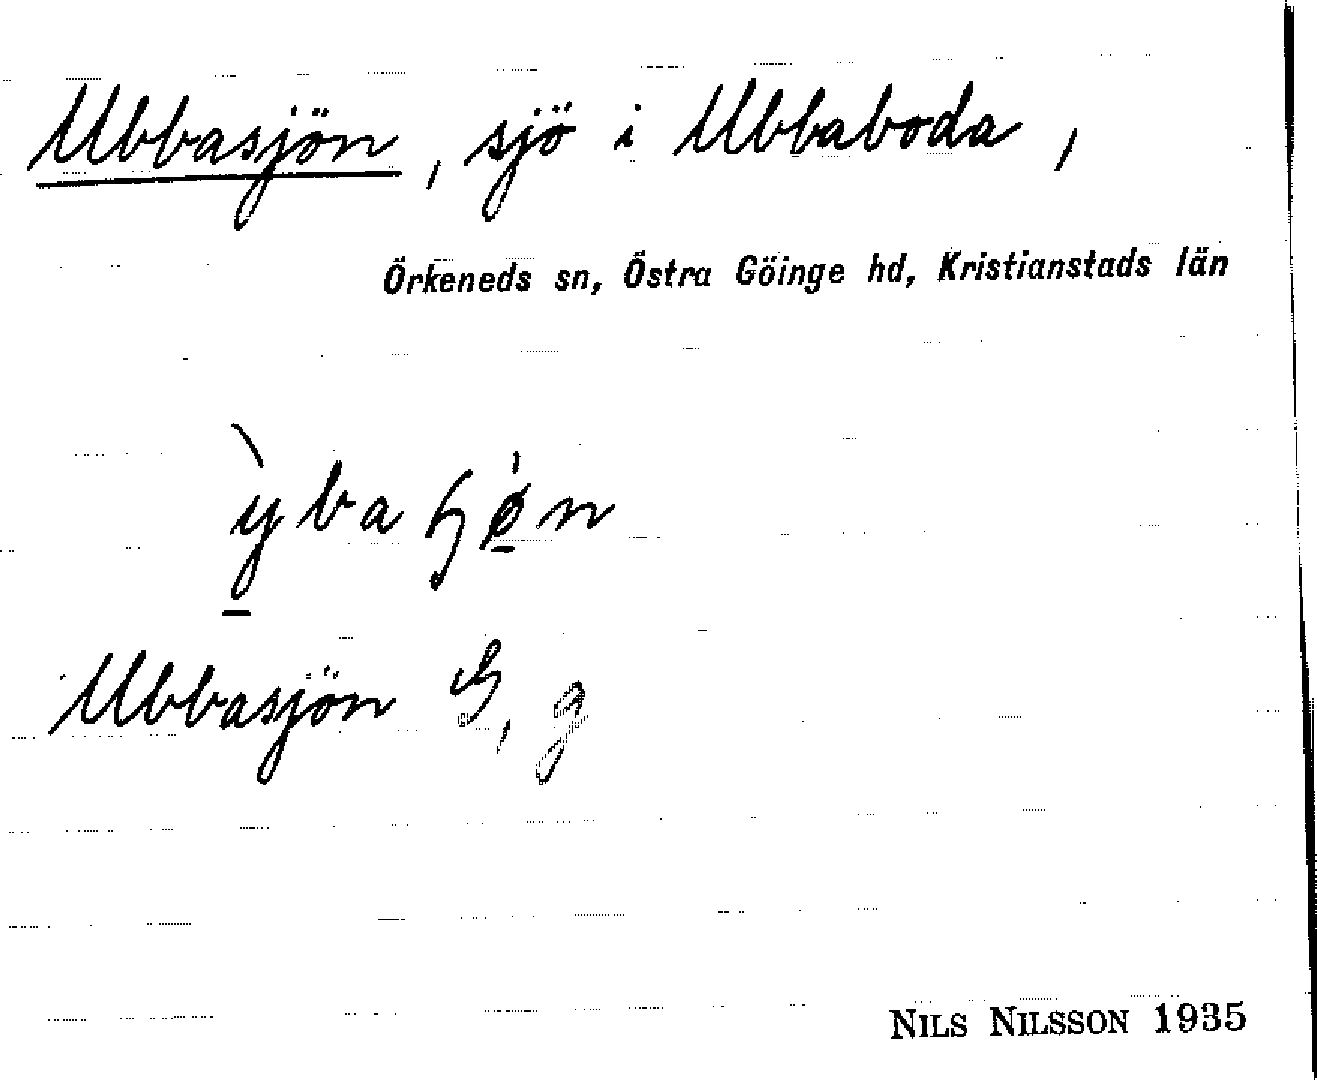 Ubbasjön, sjö i Ubbaboda,
Örkeneds sn, Östra Göinge hd, Kristianstads län
ỳbaɧø̠n
Ubbasjön G, g
NILS NILSSON 1935